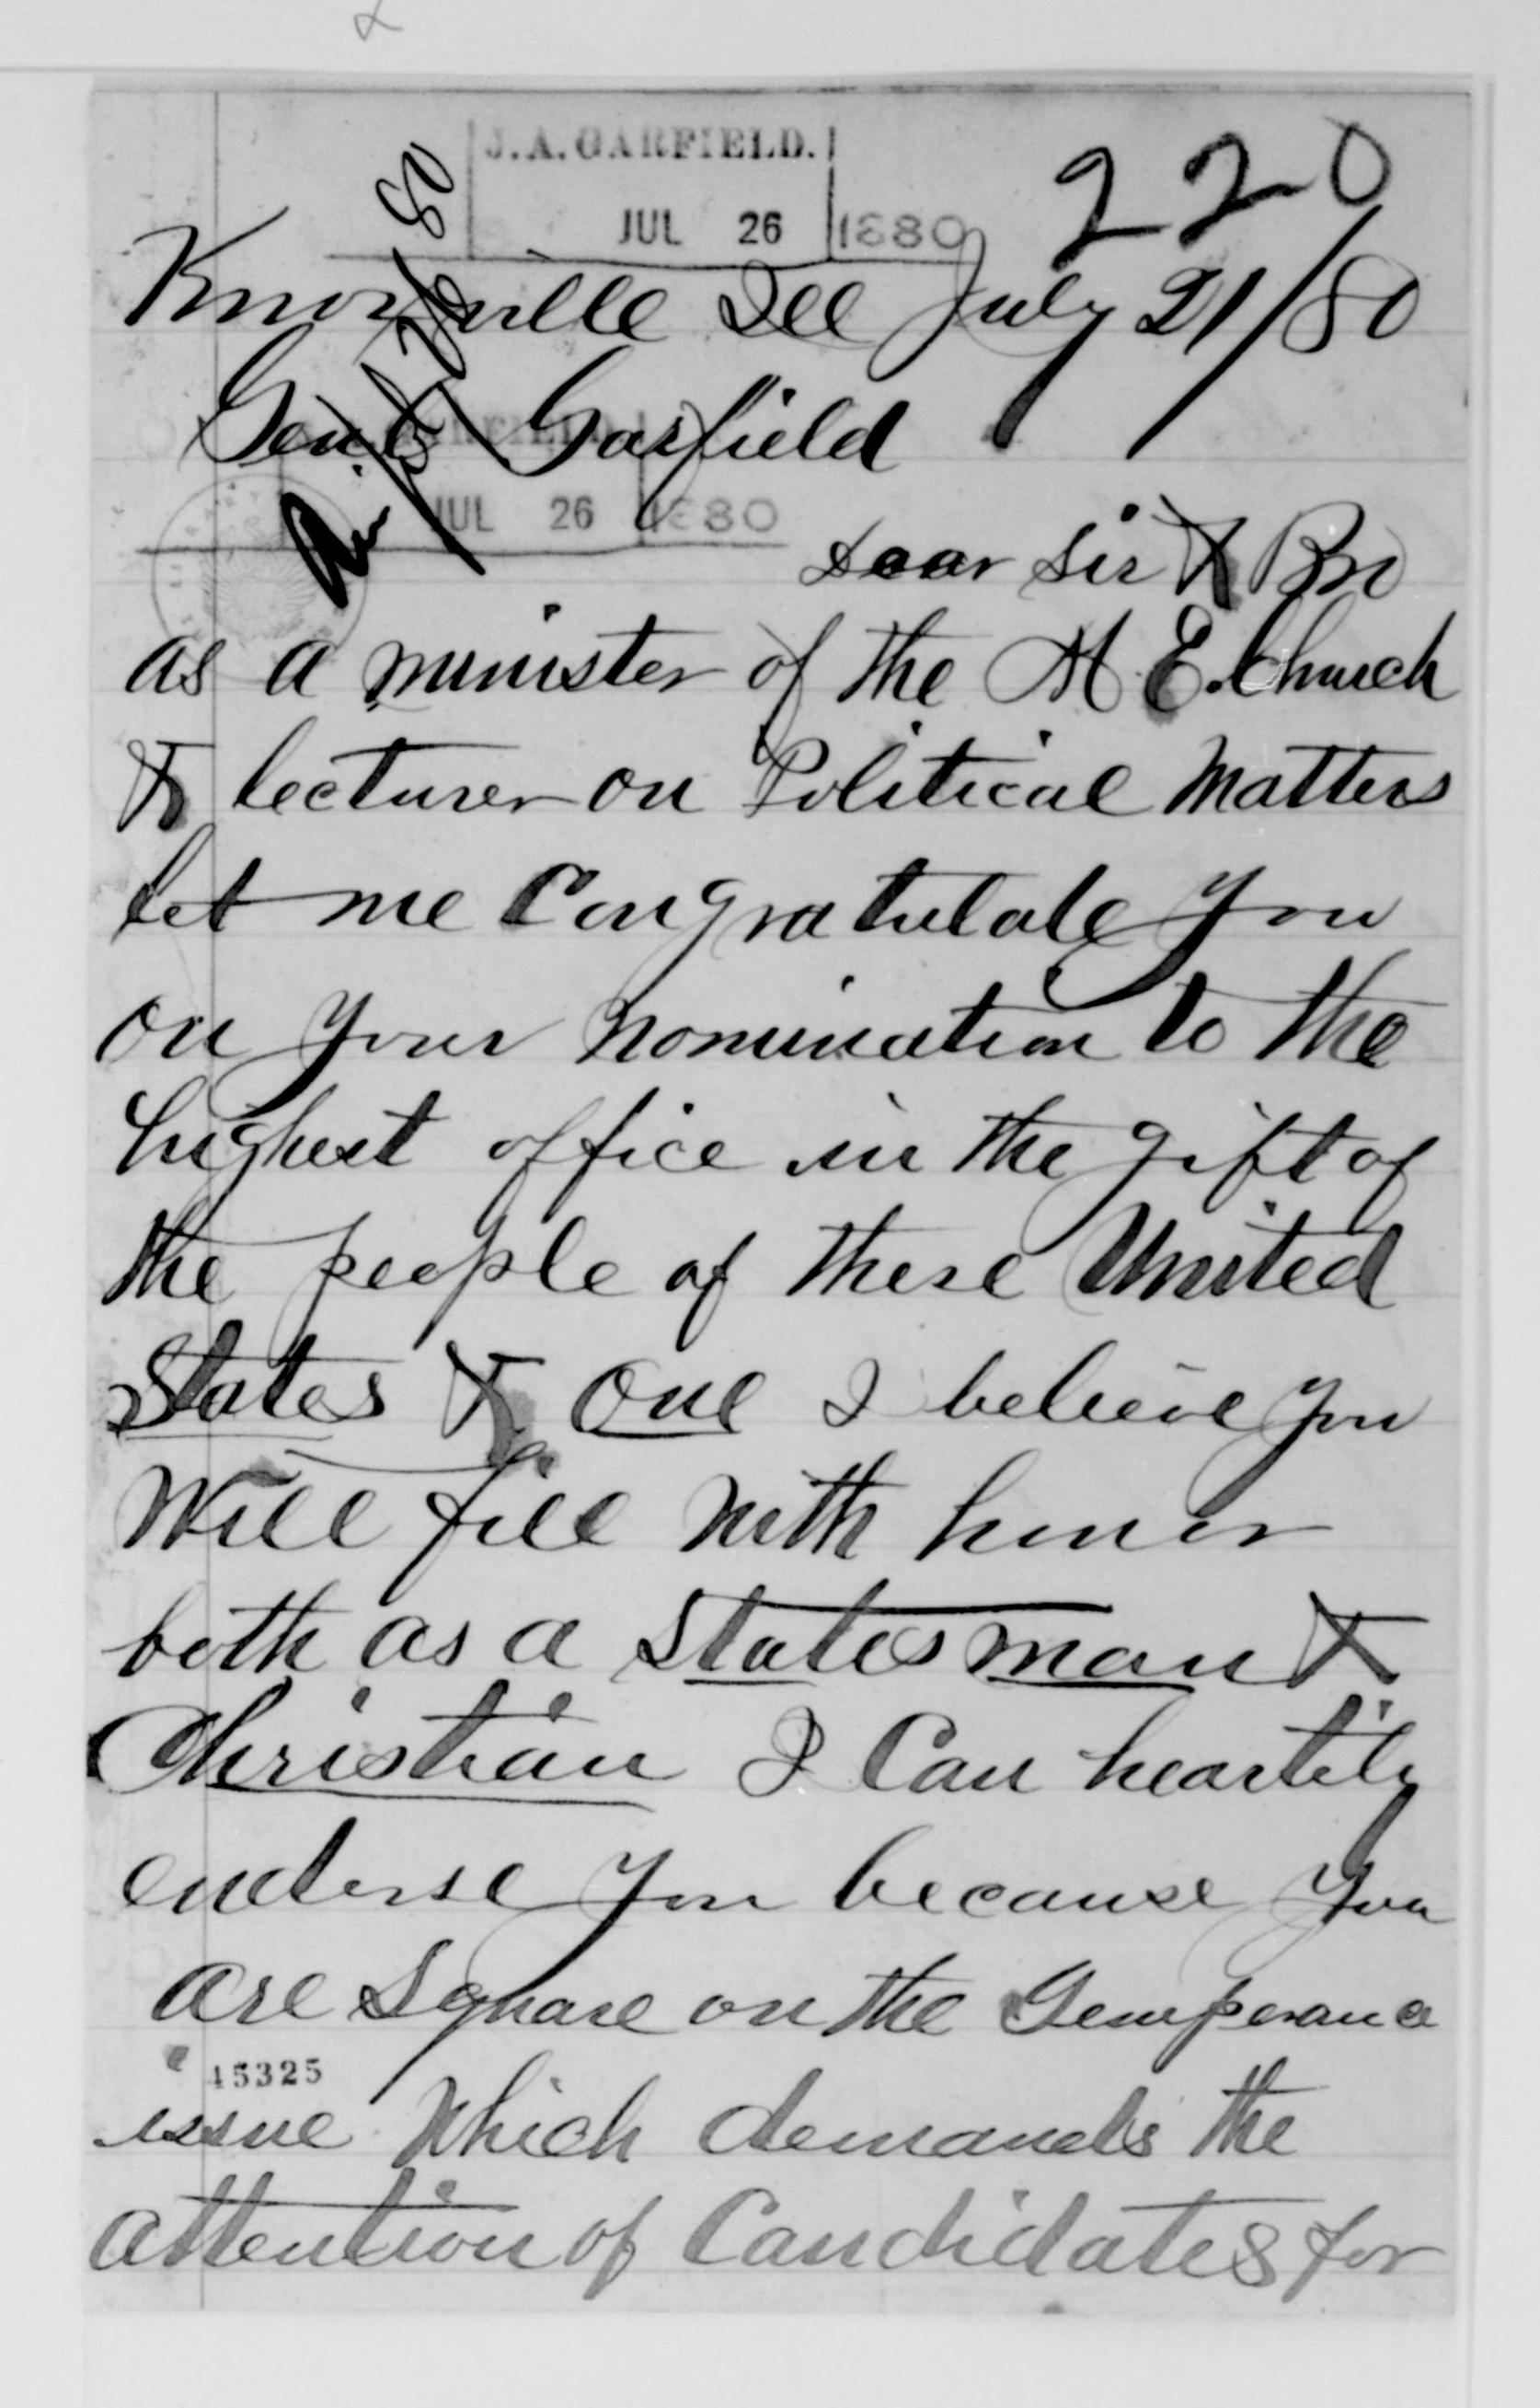 J.A. GARFIELD.
JUL 26 1880
220
Knoxville Ill July 21/80
Genl Garfield
JUL 26 1880
Dear Sir & Bro
as a minister of the M E. Church
& lecturer on Political Matters
let me Congratulate you
on your nomination to the
highest office in the gift of
the people of these United
States & One I believe you
Will fill with honor
both as a statesman &
Christian I Can heartily
endorse you because you
are Square on the Temperance
15325
issue Which demands the
attention of Candidates for